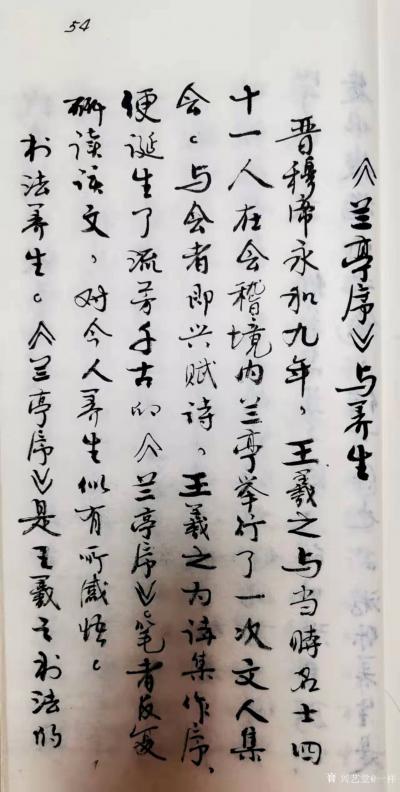 54
《兰亭序》与养生
晋穆帝永和九年，王羲之与当时名士四
十一人在会稽境内兰亭举行了一次文人集
会。与会者即兴赋诗，王羲之为诗集作序，
便诞生了流芳千古的《兰亭序》。笔者反复
研读该文，对今人养生似有所感悟。
书法养生。《兰亭序》是王羲之书法的
兴艺堂@一祥